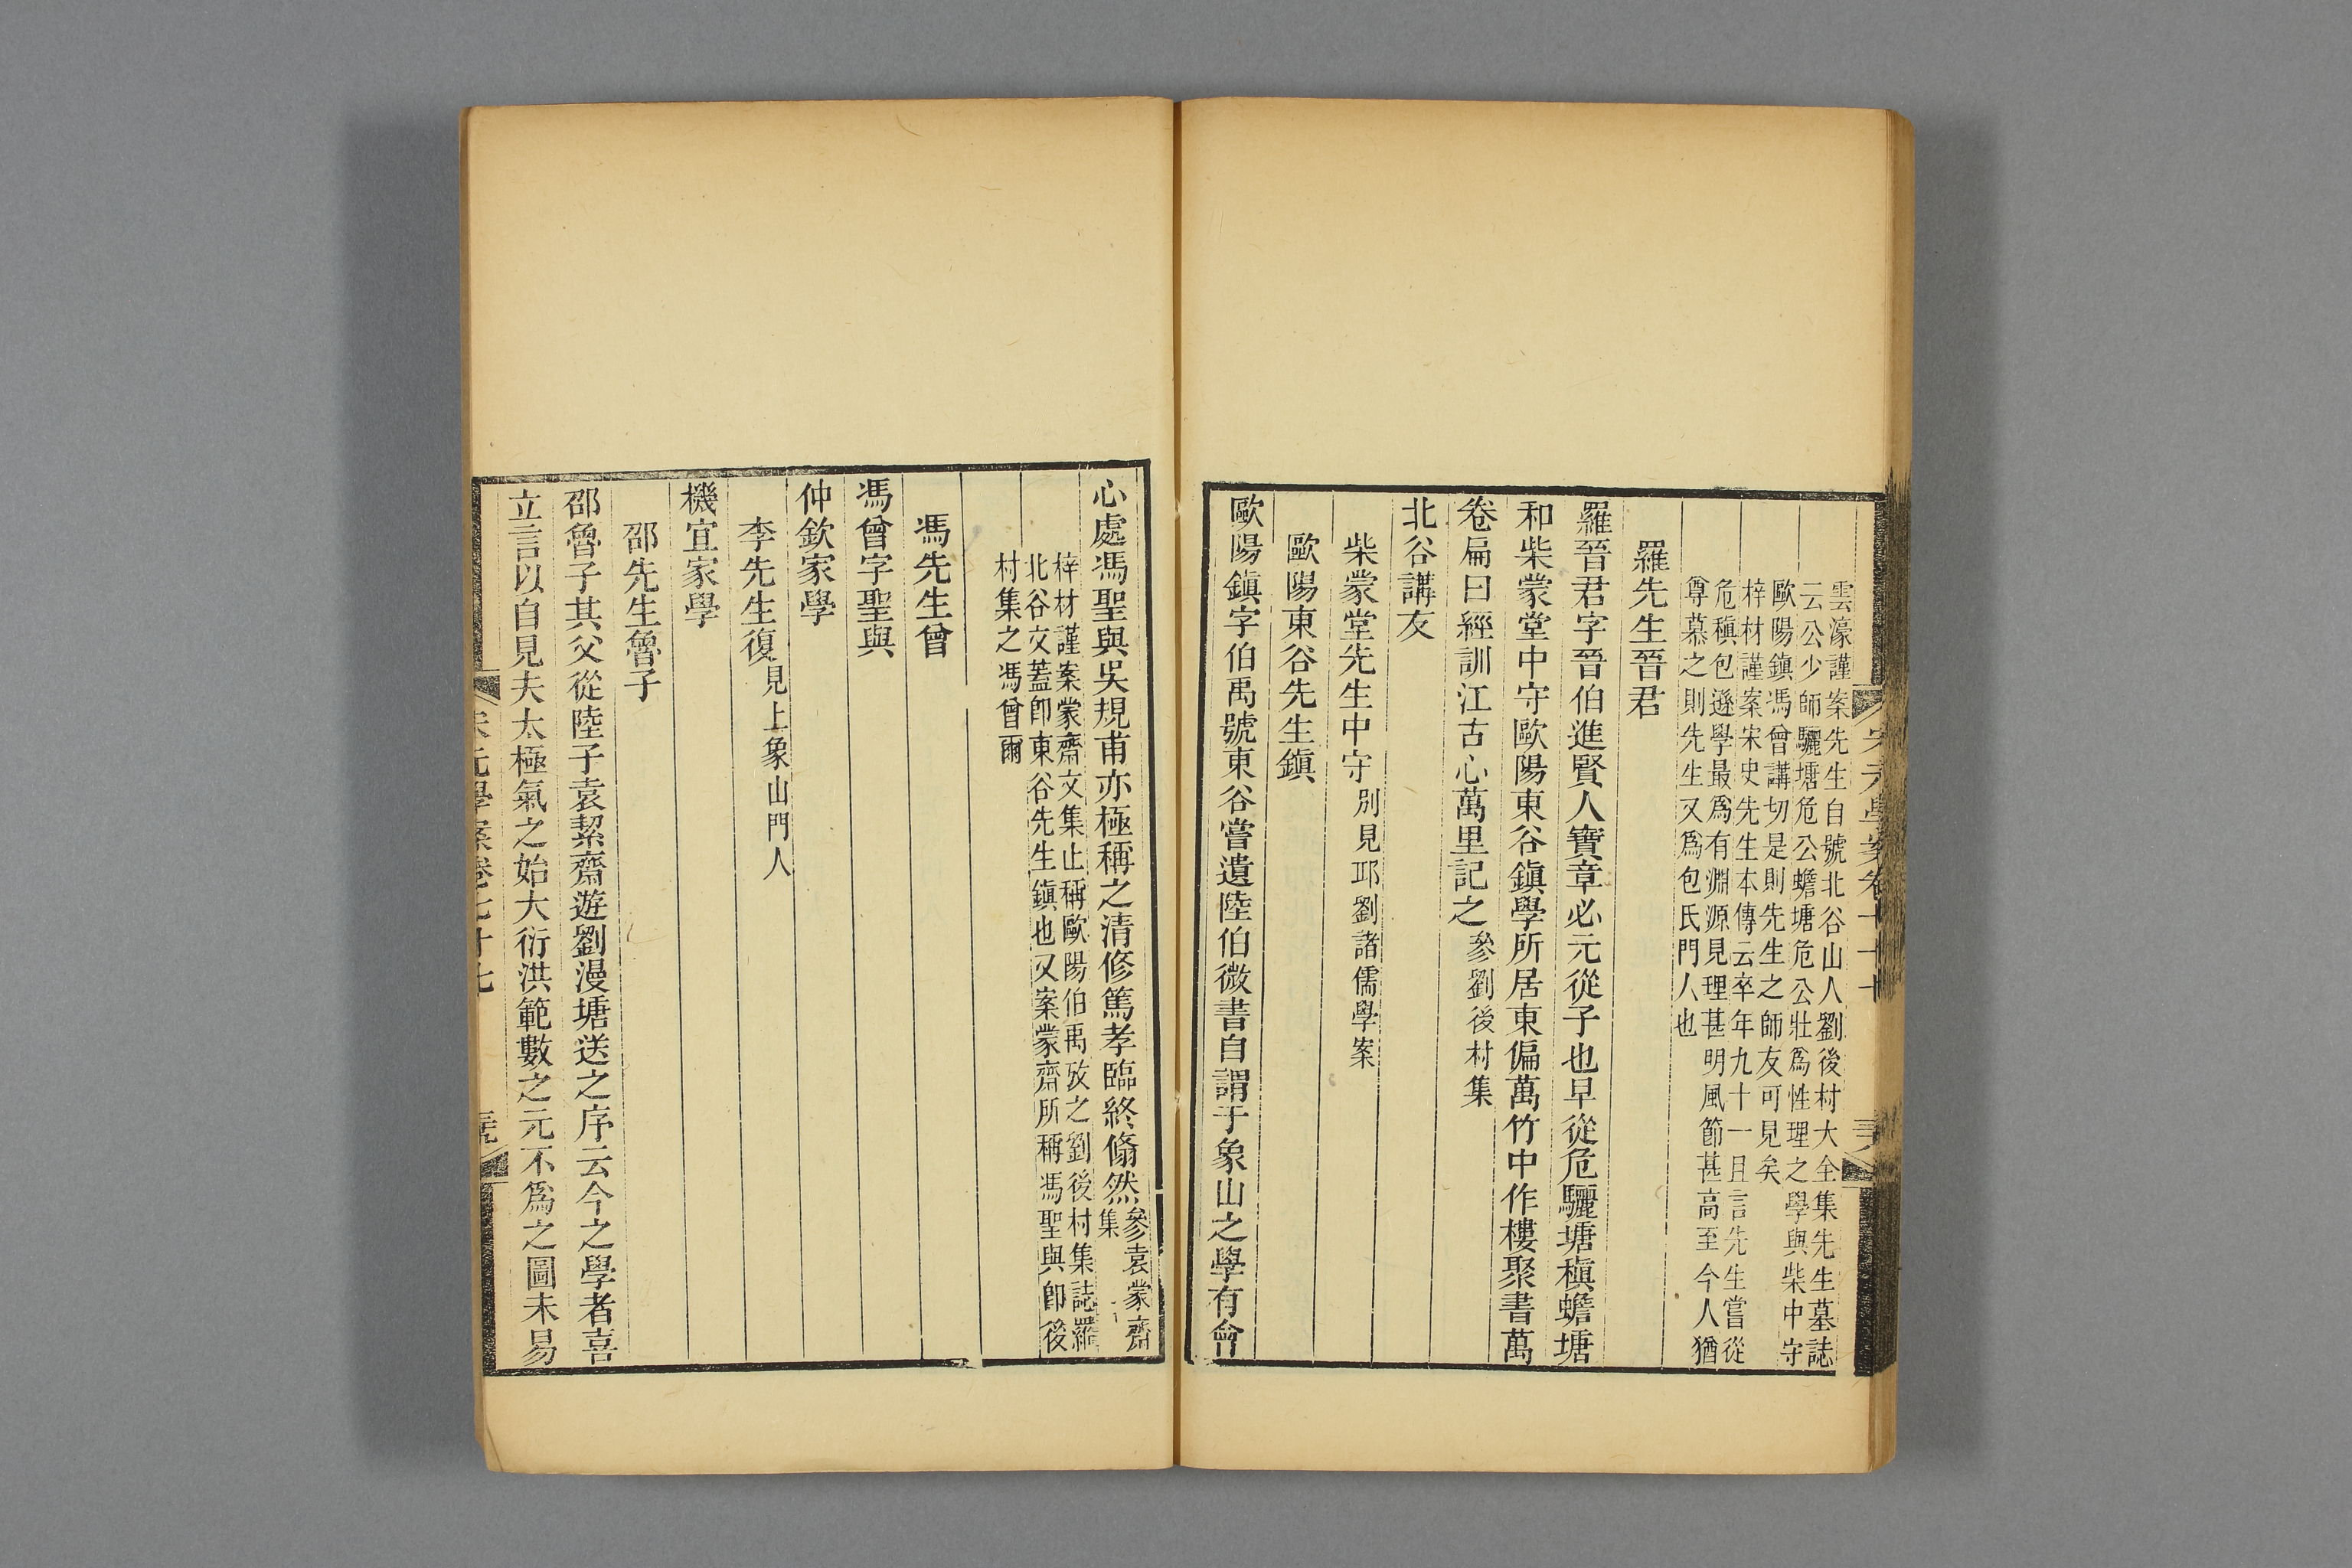 雲濠謹案先生自號北谷山人劉後村大全集先生墓誌
云公少師驪塘危公蟾塘危公壯爲性理之學與柴中守
歐陽鎭馮曾講切是則先生之師友可見矣
梓材謹案宋史先生本傳云卒年九十一且言先生嘗從
危稹包遜學最爲有淵源見理甚明風節甚高至今人猶
尊慕之則先生又爲包氏門人也
羅先生晉君
羅晉君字晉伯進賢人寶章必元從子也早從危驪塘稹蟾塘
和柴蒙堂中守歐陽東谷鎭學所居東偏萬竹中作樓聚書萬
卷扁曰經訓江古心萬里記之參劉後村集
北谷講友
柴蒙堂先生中守別見邱劉諸儒學案
歐陽東谷先生鎭
歐陽鎭字伯禹號東谷嘗遺陸伯微書自謂于象山之學有會
心處馮聖與吳規甫亦極稱之清修篤孝臨終翛然參袁蒙齋
集
梓材謹案蒙齋文集止稱歐陽伯禹攷之劉後村集誌羅
北谷文蓋卽東谷先生鎭也又案蒙齋所稱馮聖與卽後
村集之馮曾爾
馮先生曾
馮曾字聖與
仲欽家學
李先生復見上象山門人
機宜家學
邵先生魯子
邵魯子其父從陸子袁絜齋遊劉漫塘送之序云今之學者喜
立言以自見夫太極氣之始大衍洪範數之元不爲之圖未易
宋元學案卷七十七